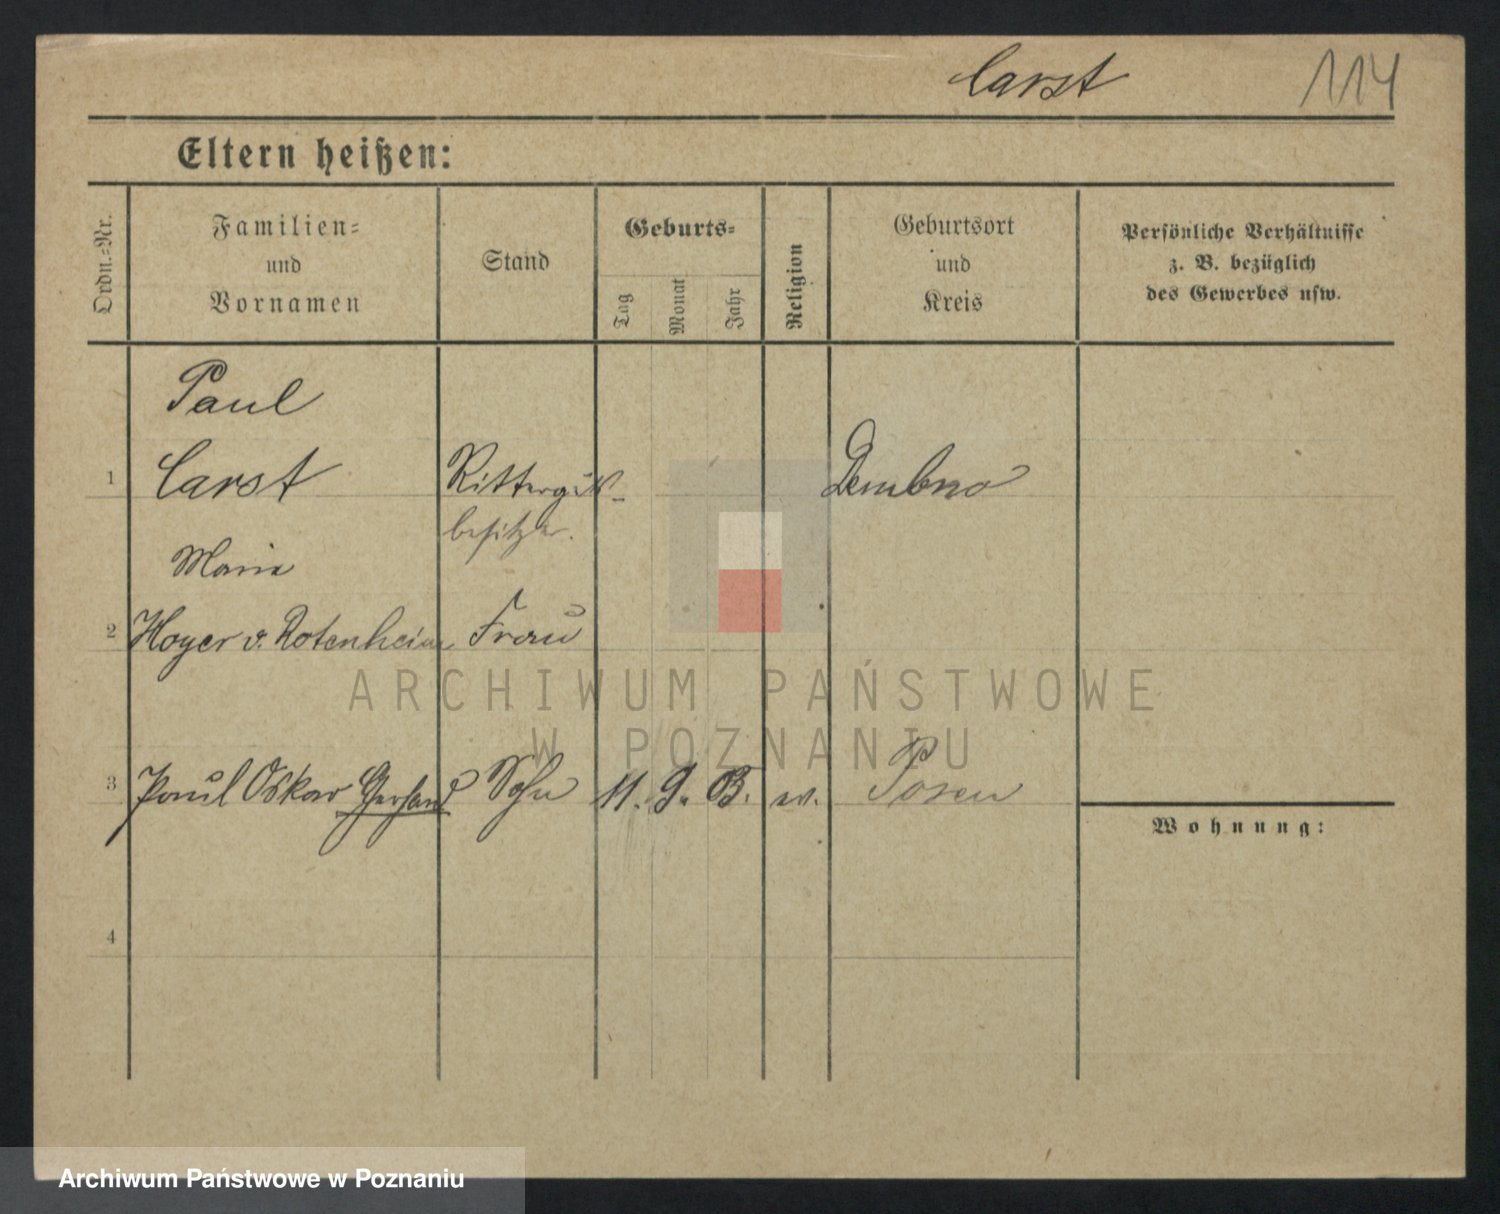 Carst 114
Eltern heißen:
Ordn.-Nr.
Familien-
und
Vornamen
Stand
Geburts-
Tag
Monat
Jahr
Religion
Geburtsort
und
Kreis
Persönliche Verhältnisse
z. B. bezüglich
des Gewerbes usw.
Paul
1 Carst Ritterguts- Dembno
besitzer.
Marie
2 Hoyer v. Rotenheim Frau
ARCHIWUM PAŃSTWOWE
W POZNANIU
3 Paul Oskar Gerhard Sohn 11. 9. ev. Posen
Wohnung:
4
Archiwum Państwowe w Poznaniu